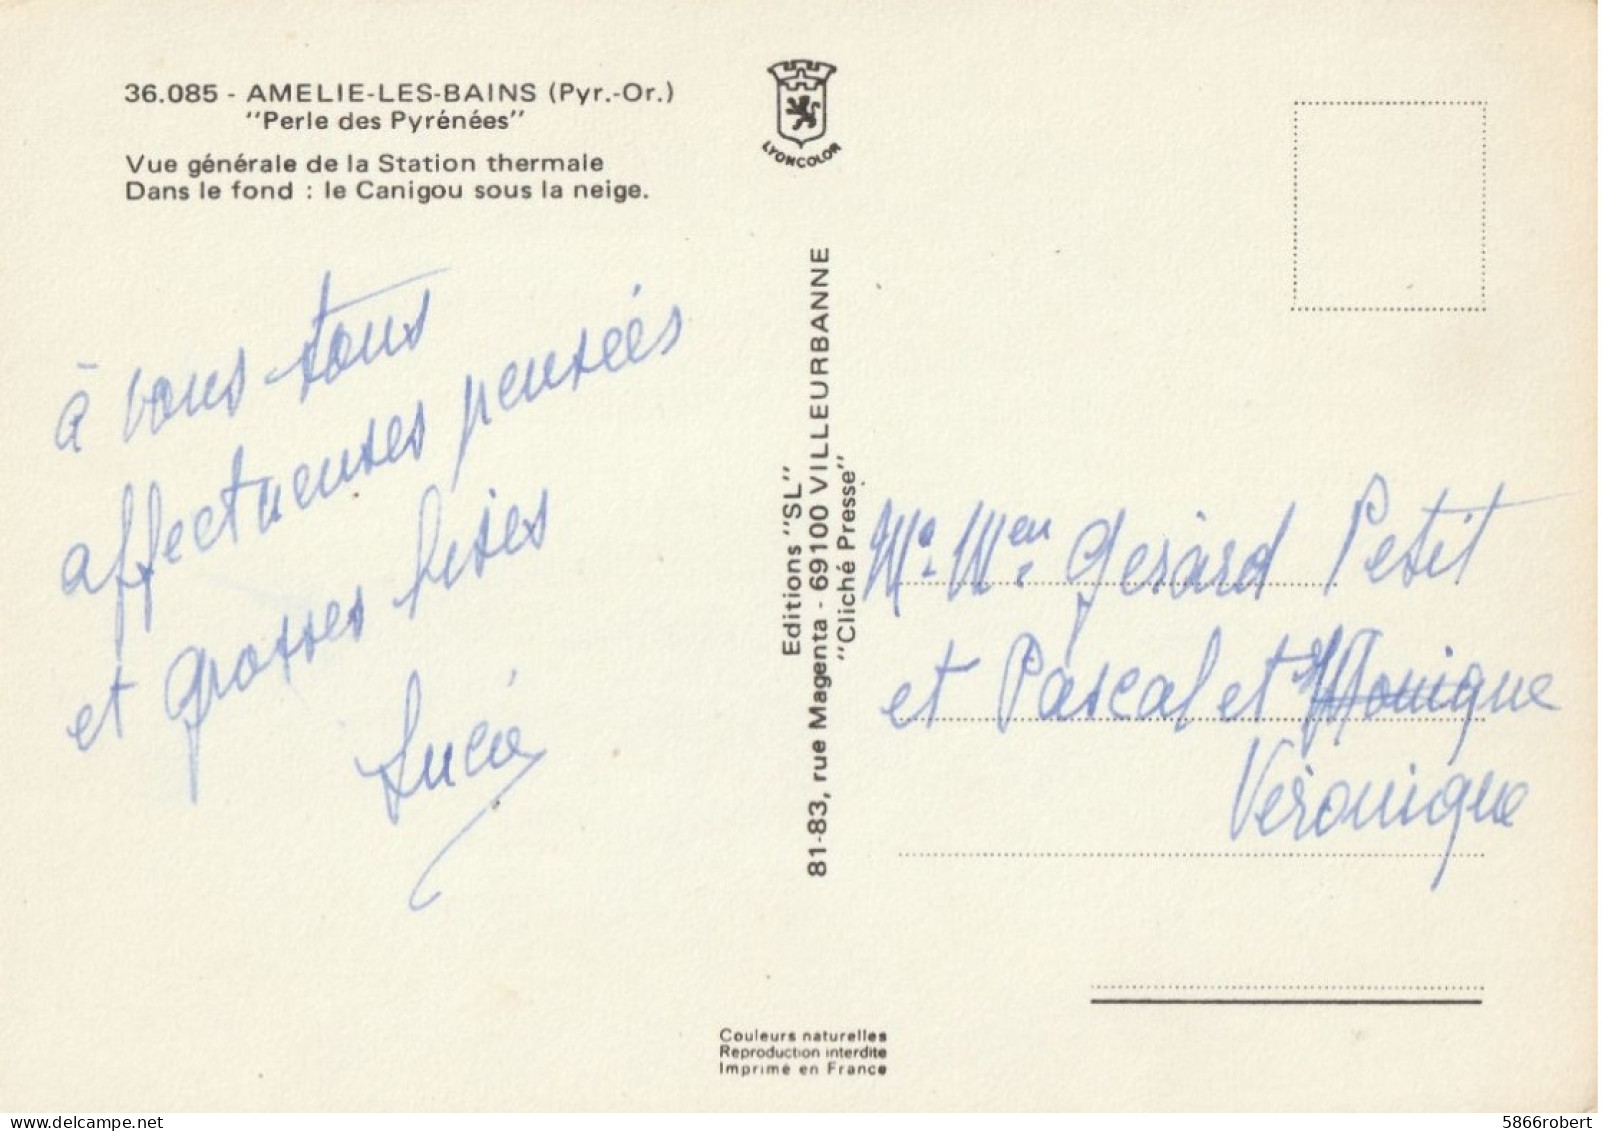 36.085 - AMELIE-LES-BAINS (Pyr.-Or.)
"Perle des Pyrénées"
Vue générale de la Station thermale
Dans le fond : le Canigou sous la neige.
à vous tous
affectueuses pensées
et grosses bises
Lucie
LYONCOLOR
Editions "SL"
81-83, rue Magenta - 69100 VILLEURBANNE
"Cliché Presse"
Gérard Petit
et Pascal et Monique
Véronique
Couleurs naturelles
Reproduction interdite
Imprimé en France
5866robert